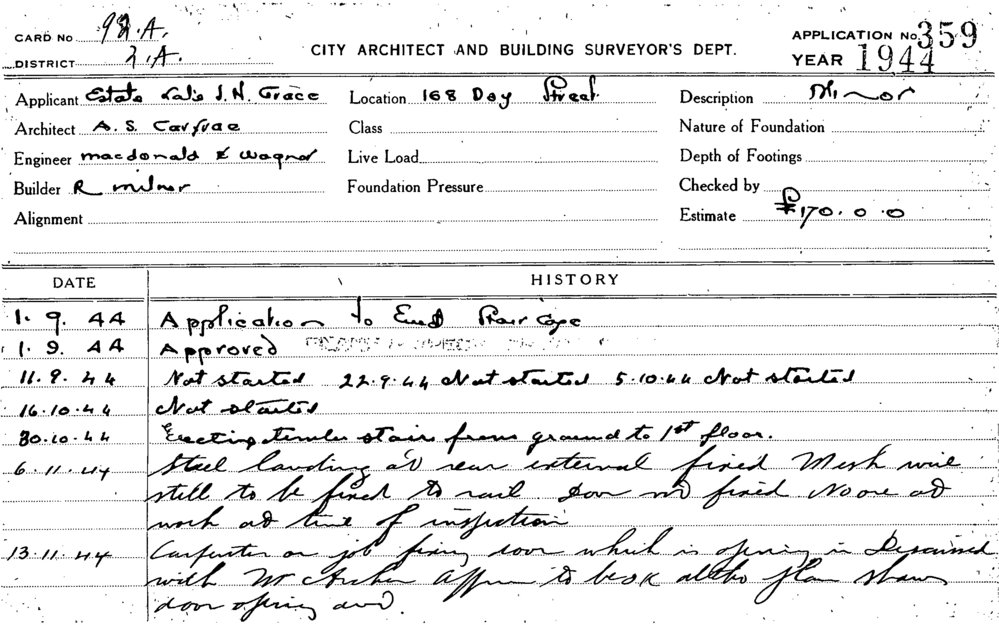 CARD No 92.A.
DISTRICT 2.A.
CITY ARCHITECT AND BUILDING SURVEYOR'S DEPT.
APPLICATION No. 359
YEAR 1944
Applicant Estate Late J. N. Grace
Location 168 Day Street
Description Minor
Architect A. S. Carfrae
Class
Nature of Foundation
Engineer macdonald & Wagner
Live Load
Depth of Footings
Builder R milner
Foundation Pressure
Checked by
Alignment
Estimate £170.0.0
DATE HISTORY
1. 9. 44 Application to
1. 9. 44 Approved
11.9.44 Not started 22.9.44 Not started 5.10.44 Not started
16.10.44 Not started
30.10.44 Erecting timber stairs from ground to 1st floor.
6.11.44 Steel landing at rear external fixed Mesh wire
still to be fixed to rail Door not fixed No one at
work at time of inspection
13.11.44 Carpenter on job fixing door which is opening in Discussed
with Mr Archer to be OK altho plan shows
door opening out.